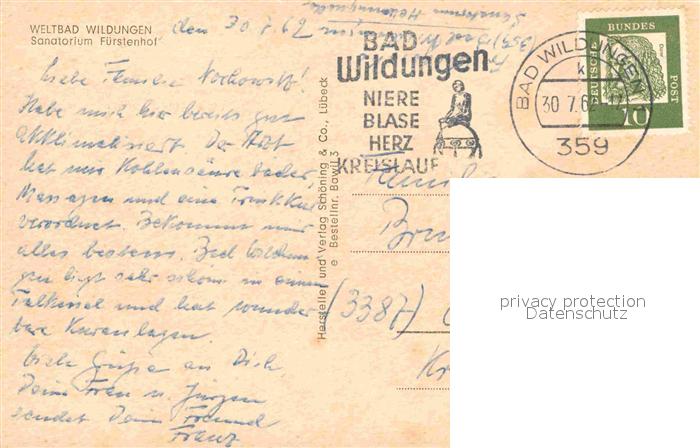 WELTBAD WILDUNGEN
Sanatorium Fürstenhof
den 30.7.62
Liebe Familie
Habe mich hier bereits gut
akklimatisiert. Der Arzt
hat mir Kohlensäure bäder,
Massagen und eine Trinkkur
verordnet. Bekommt mir
alles bestens. Bad Wildun-
gen liegt sehr schön in einem
Talkessel und hat wunder
bare Kuranlagen.
Viele Grüße an Dich,
Deine Frau u. Jürgen
sendet Dein Freund
Franz
Hersteller und Verlag Schöning & Co., Lübeck
Bestellnr. Bawil 3
BAD
Wildungen
NIERE
BLASE
HERZ
KREISLAUF
BAD WILDUNGEN
k
30 7.6
359
DEUTSCHE
BUNDES
POST
10
(3387)
privacy protection
Datenschutz